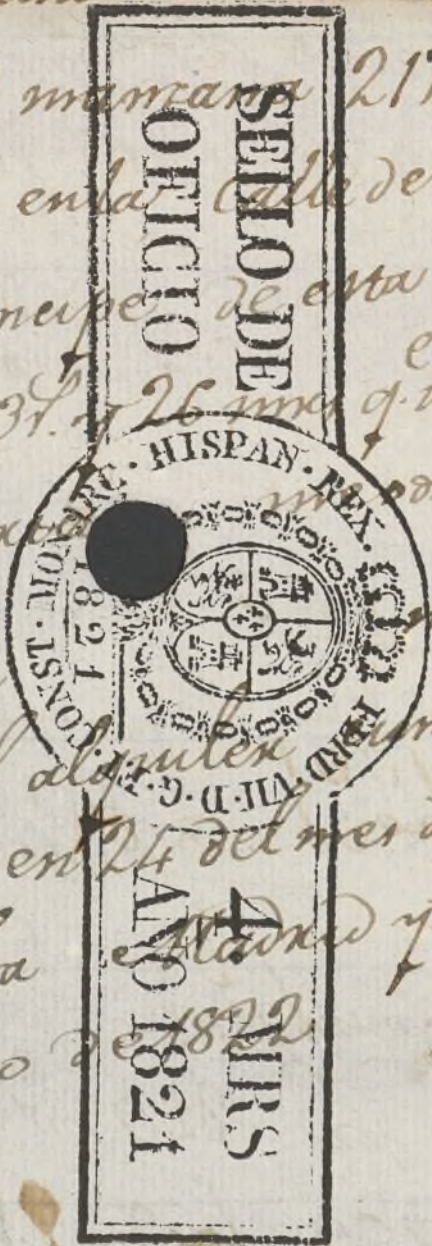 SELLO DE
OFICIO
FERD·VII·D·G·ET·CONST·MONARC·HISPAN·REX·
1821
4 MRS
AÑO 1821
manzana 217
en la calle de
de esta
y 26 mrs q.
alquiler
en 24 del mes
Madrid y
de 1822